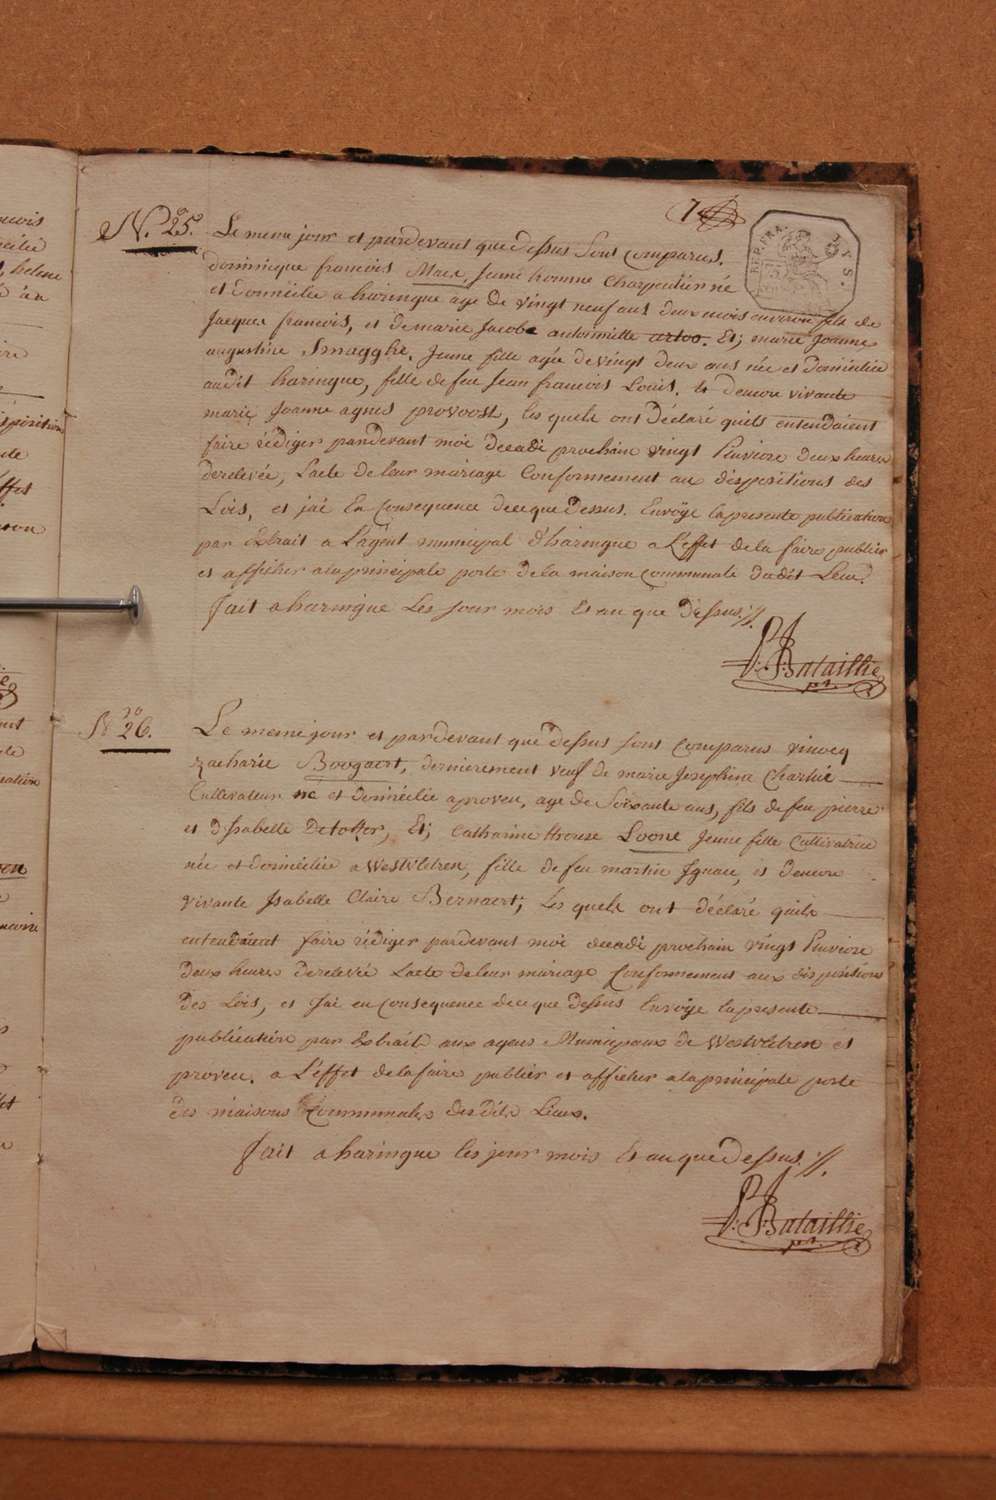 7
REP. FRA.
LYS.
N.° 25.
Le meme jour et pardevant que dessus sont comparus.
dominique francois Maes, jeune homme charpentier né
et domicilié a haringue age de vingt neuf ans deux mois environ fils de
Jacques francois, et de marie Jacobe antoinette artoo. Et; marie Joanne
augustine Smagghe, jeune fille agée de vingt deux ans née et domiciliée
audit haringue, fille de feu Jean francois Louis, et d'encore vivante
marie Joanne agnes provoost, les quels ont déclaré quils entendaient
faire rédiger pardevant moi decadi prochain vingt Pluviose deux heures
derelevée, l'acte de leur mariage conformement aux dispositions des
Lois, et j'ai En consequence dece que dessus. Envöÿe la presente publication
par extrait a L'agent municipal d'haringue a L'effet de la faire publier
et afficher a la principale porte de la maison communale dudit Lieu.
fait a haringue Les jour mois Et an que dessus.//.
P: J: Bataillie
N.° 26.
Le meme jour et pardevant que dessus sont comparus vinocq
zacharie Boogaert, dernierement veuf de marie Josephine Charlié
Cultivateur né et domicilié a proven, age de Soixante ans, fils de feu pierre
et d'Isabelle Detoller, Et; Catharine therese Loone Jeune fille Cultivatrice
née et domiciliée a Westvletren, fille de feu martin Ignace, et d'encore
vivante Isabelle Claire Bernaert; les quels ont déclaré quils
entendaient faire rédiger pardevant moi decadi prochain vingt Pluviose
deux heures derelevée L'acte de leur mariage conformement aux dispositions
des Lois, et j'ai en consequence dece que dessus Envöÿe la presente
publication par Extrait aux agens Municipaux de Westvletren et
proven. a L'effet de la faire publier et afficher a la principale porte
des maisons communales desdits Lieux.
fait a haringue les jour mois Et an que dessus.//.
P: J: Bataillie